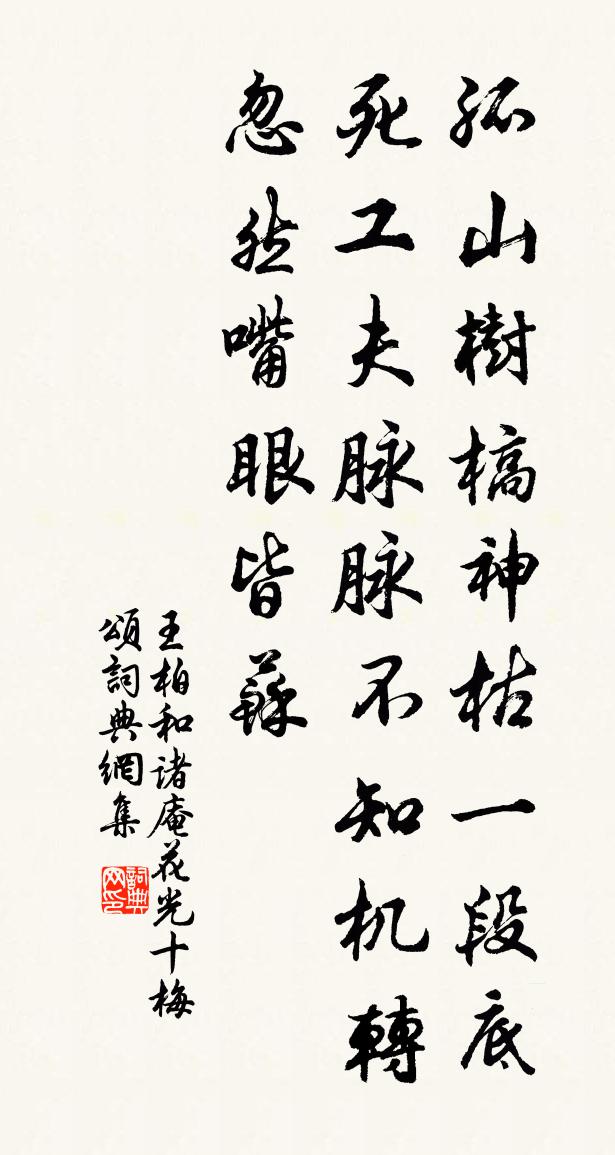 孤山樹槁神枯一段底
死工夫脉脉不知机轉
忽然嘴眼皆蘇
王柏和诸庵花光十梅
頌詞典網集
詞典网印